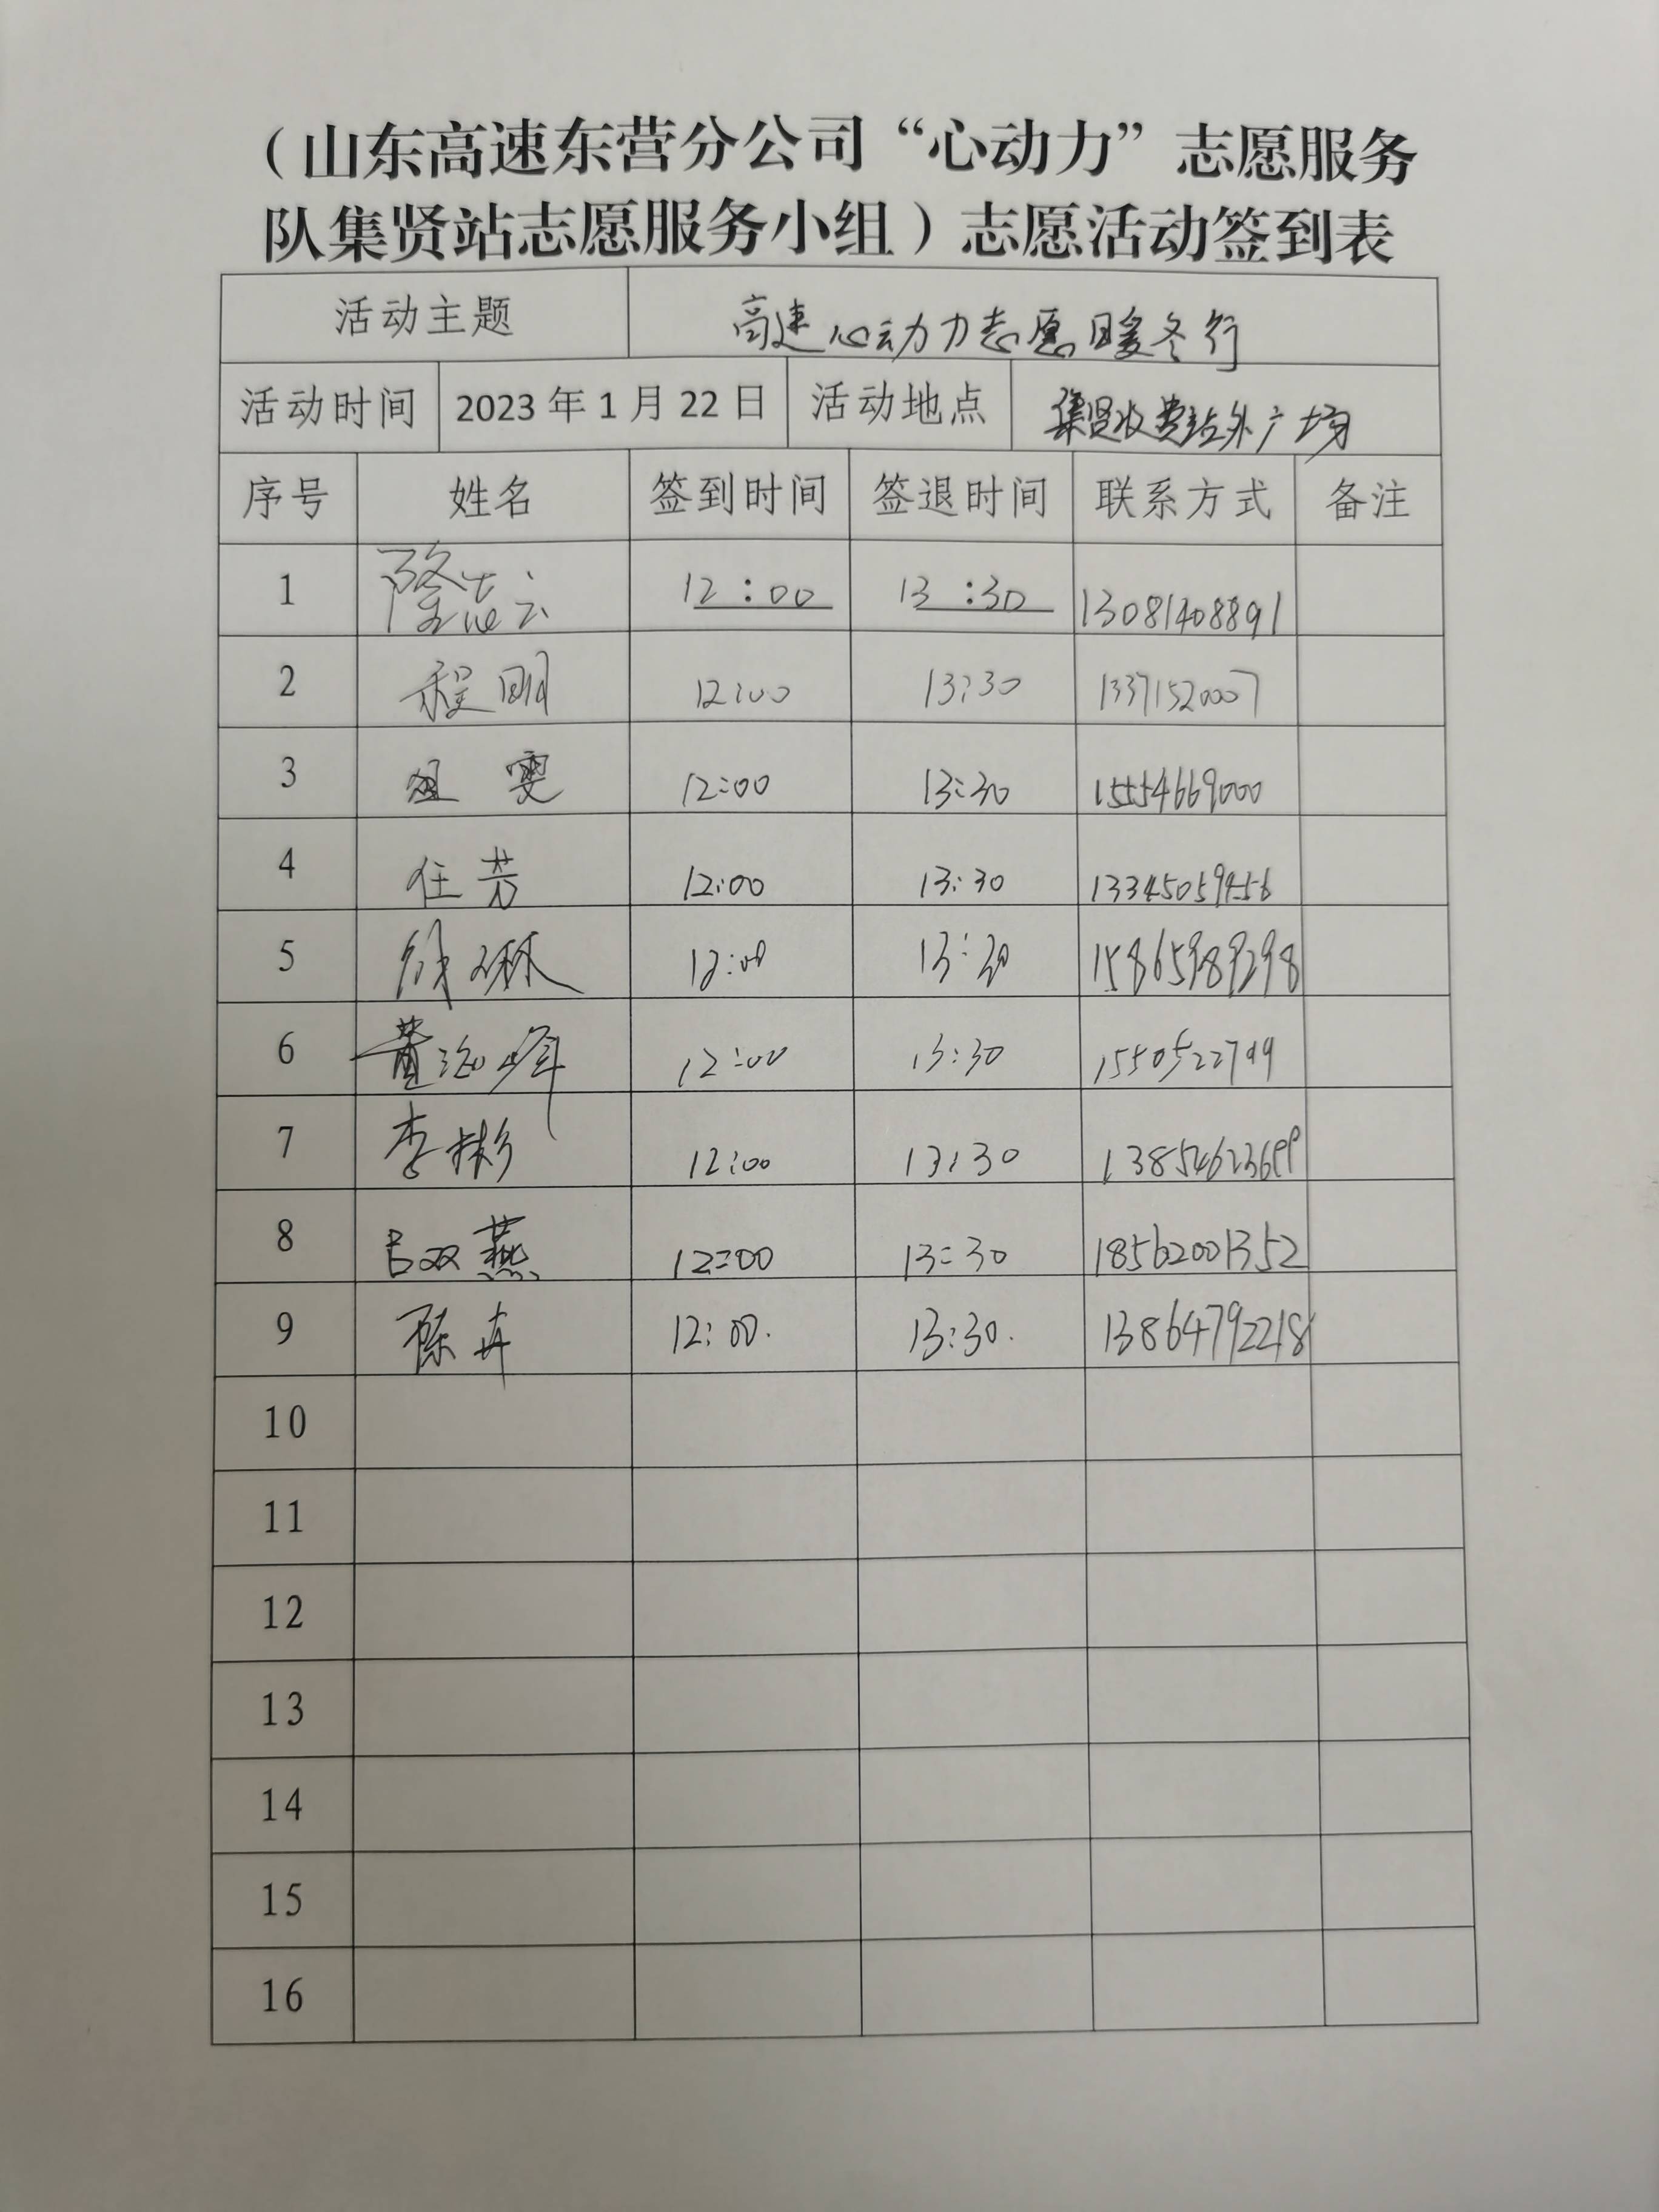 （山东高速东营分公司“心动力”志愿服务
队集贤站志愿服务小组）志愿活动签到表
活动主题 高速心动力 力志愿暖冬行
活动时间 2023年1月22日 活动地点 集贤收费站外广场
序号 姓名 签到时间 签退时间 联系方式 备注
1 隆志云 12:00 13:30 13081408891
2 程明 12:00 13:30 13371520007
3 雯 12:00 13:30 15554669000
4 任芳 12:00 13:30 13345059456
5 徐琳 12:00 13:30 15865989298
6 董海峰 12:00 13:30
7 李彬 12:00 13:30
8 吕双燕 12:00 13:30 18562001352
9 陈卉 12:00. 13:30. 13864792218
10
11
12
13
14
15
16